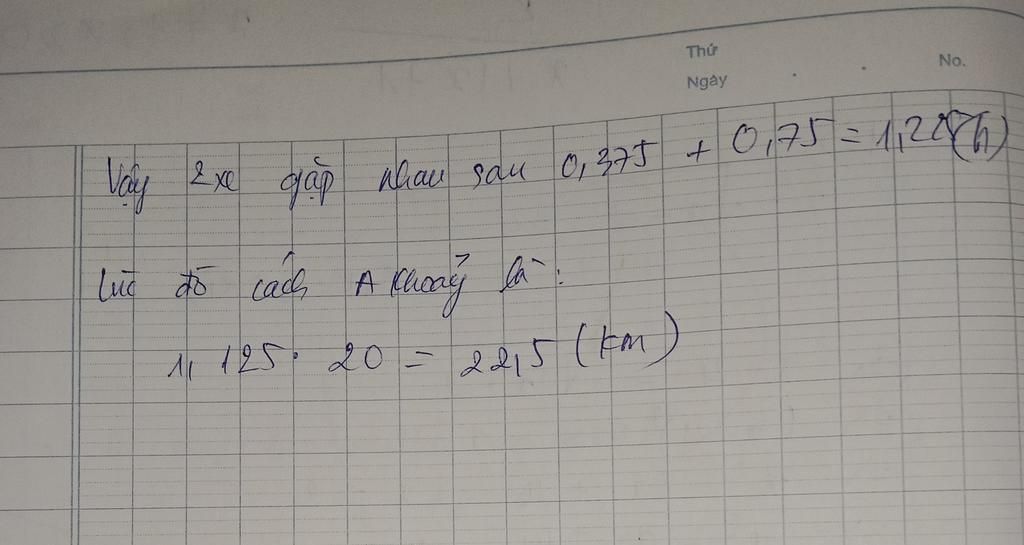 Thứ
Ngày
No.
Vậy 2 xe gặp nhau sau 0,375 + 0,75 = (h)
Lúc đó cách A khoảng là:
1,125 . 20 = 22,5 (km)